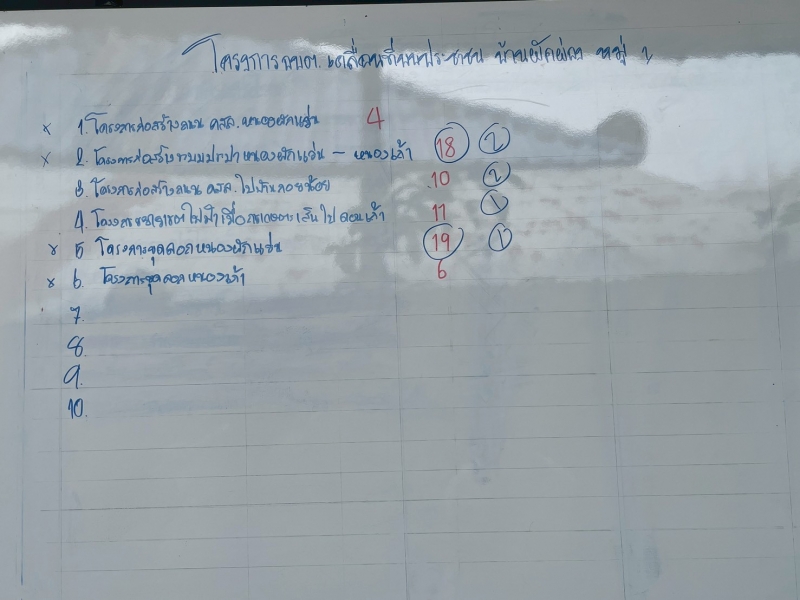 โครงการ อบต. เคลื่อนที่พบประชาชน บ้านผักผ่า หมู่ 2
x 1. โครงการก่อสร้างถนน คสล. หนองผักแว่น 4
x 2. โครงการก่อสร้างระบบประปาหนองผักแว่น - หนองเก้า 18 2
3. โครงการก่อสร้างถนน คสล. ไป 10 2
4. โครงการขยายเขตไฟฟ้าเพื่อการเกษตรเส้นไปดอนเก้า 11 1
x 5 โครงการขุดลอกหนองผักแว่น 19 1
x 6. โครงการขุดลอกหนองเก้า 6
7.
8.
9.
10.